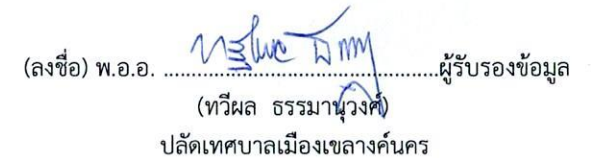 (ลงชื่อ) พ.อ.อ. ................................................ผู้รับรองข้อมูล
(ทวีผล ธรรมานุวงศ์)
ปลัดเทศบาลเมืองเขลางค์นคร